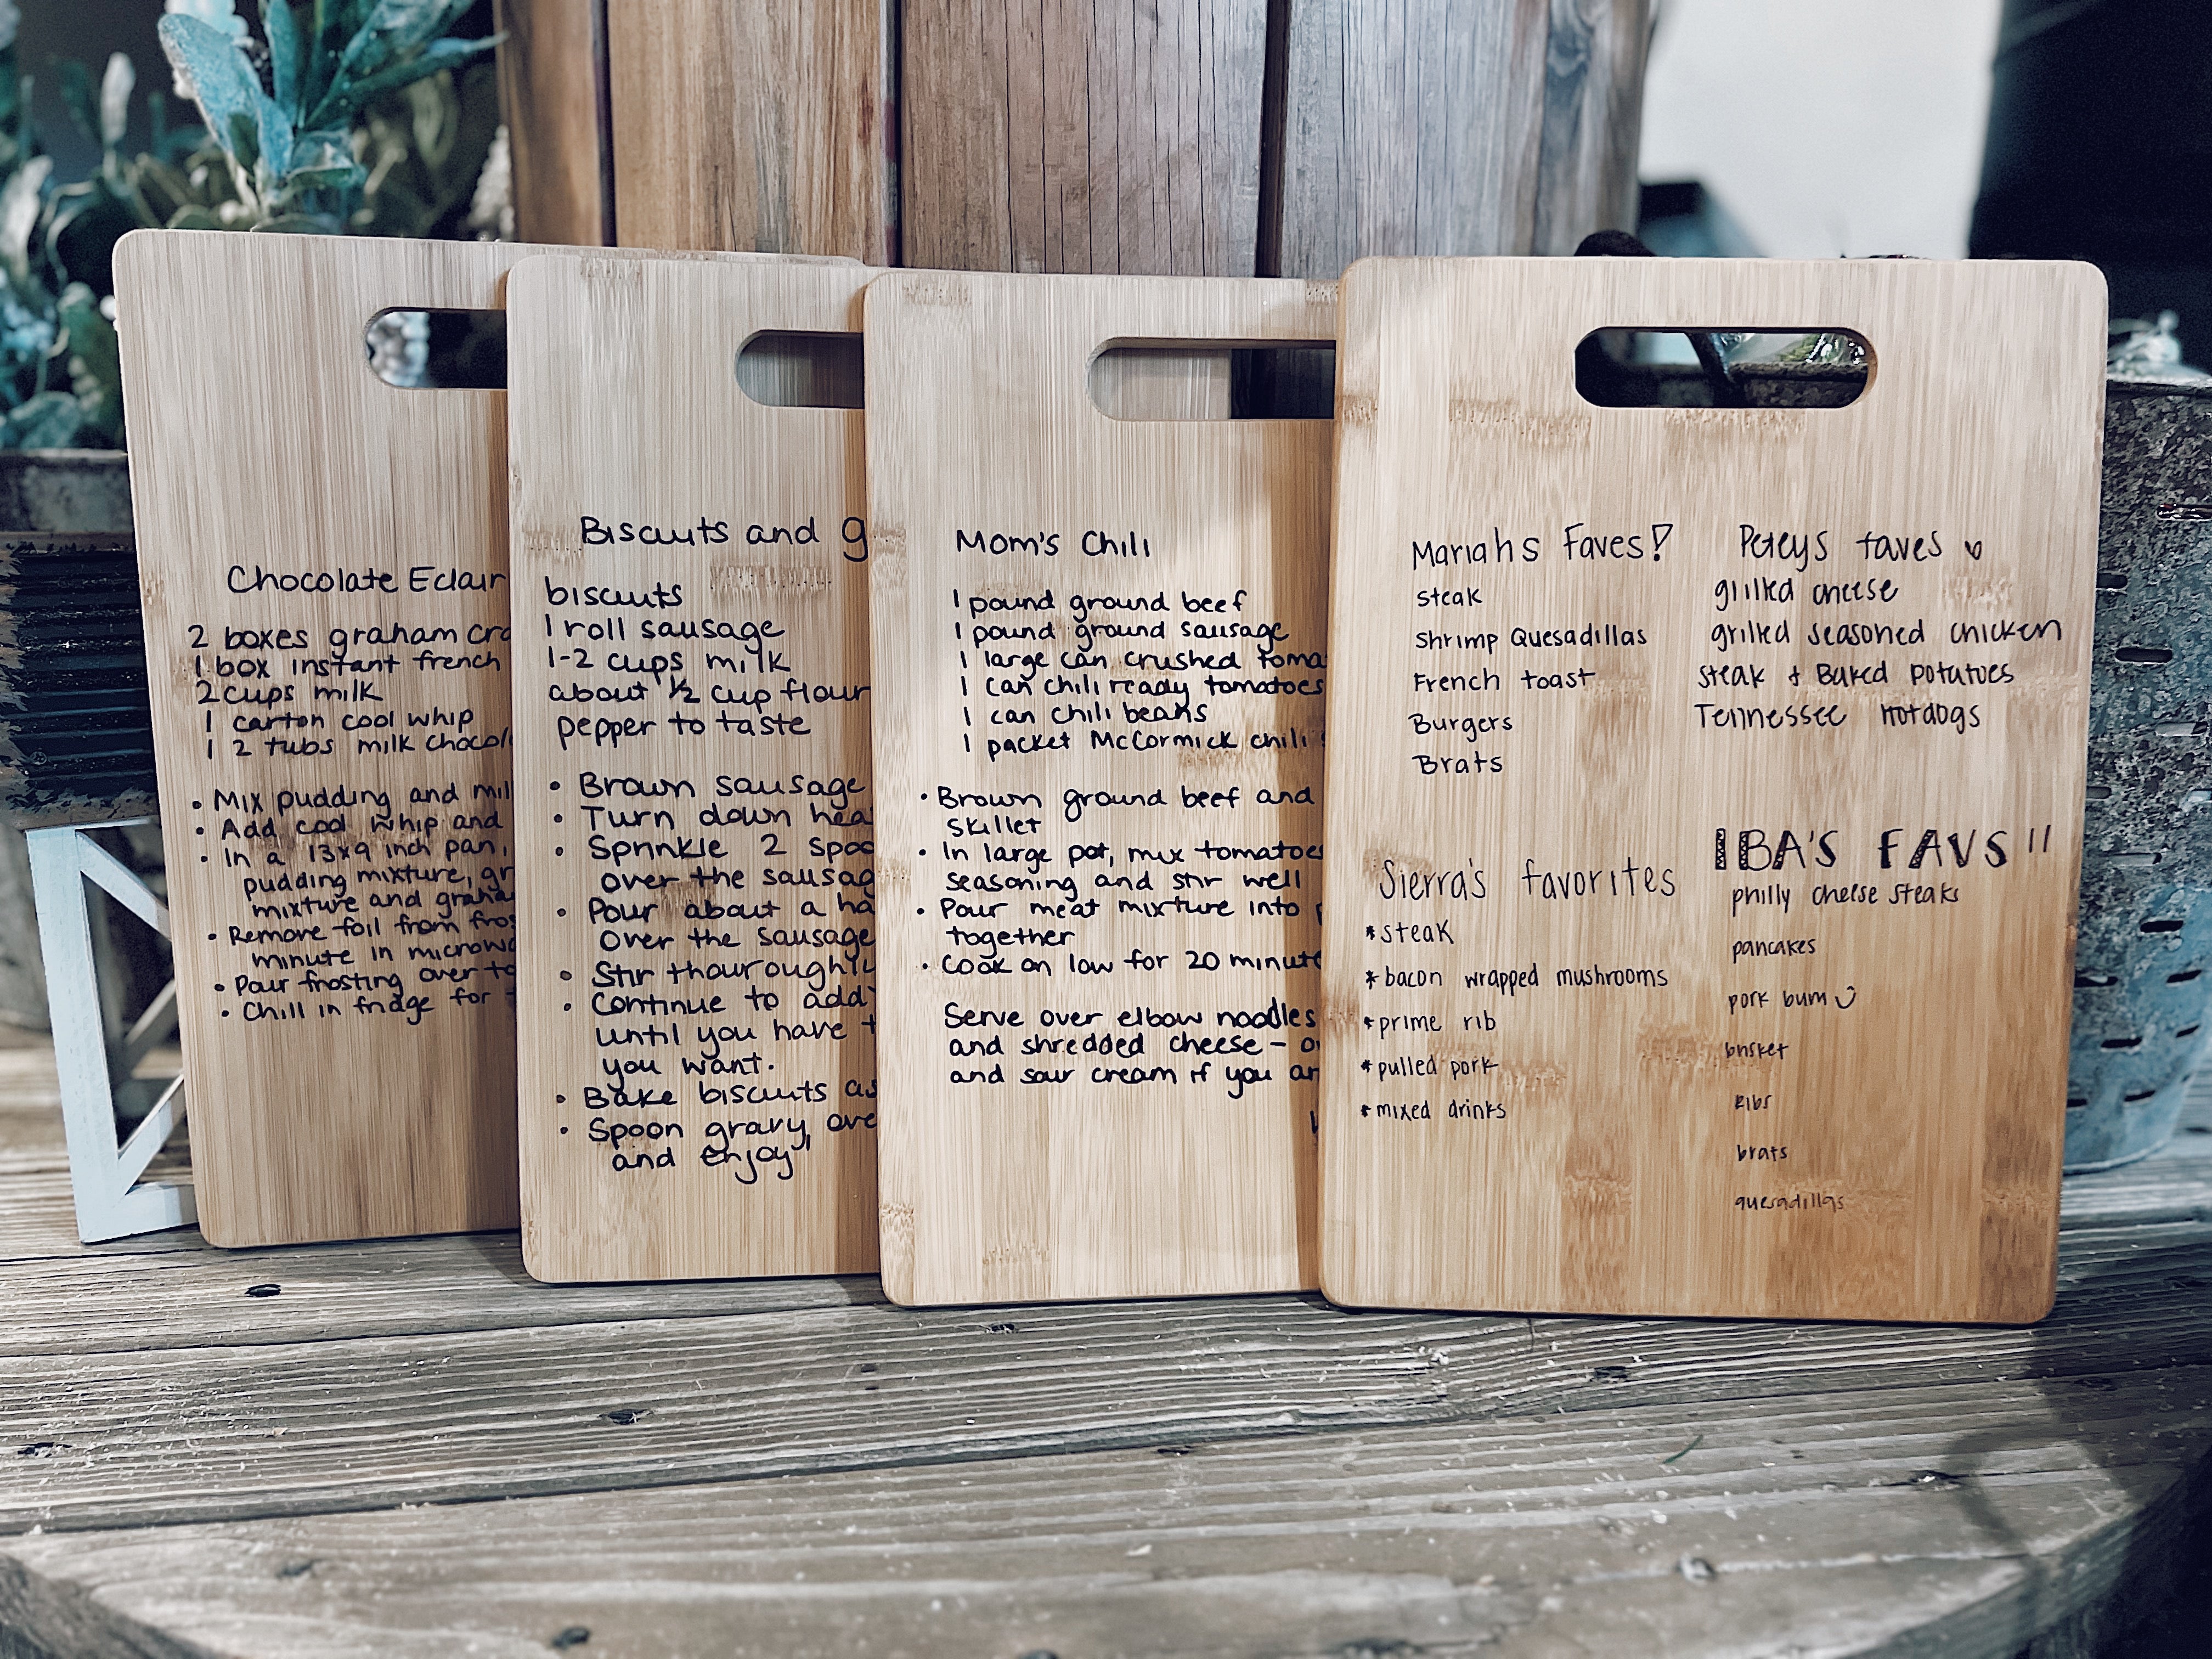 Chocolate Eclair
2 boxes graham cra
1 box instant french
2 cups milk
1 carton cool whip
1 2 tubs milk chocol
• Mix pudding and mil
• Add cool whip and
• In a 13x9 inch pan,
pudding mixture, gr
mixture and graha
• Remove foil from fros
minute in microwa
• Pour frosting over to
• Chill in fridge for
Biscuits and g
biscuits
1 roll sausage
1-2 cups milk
about ½ cup flour
pepper to taste
• Brown sausage
• Turn down hea
• Sprinkle 2 spoo
over the sausag
• Pour about a ha
over the sausage
• Stir thouroughly
• Continue to add
until you have t
you want.
• Bake biscuits as
• Spoon gravy ove
and enjoy!
Mom's Chili
1 pound ground beef
1 pound ground sausage
1 large can crushed toma
1 can chili ready tomatoes
1 can chili beans
1 packet McCormick chili s
• Brown ground beef and
skillet
• In large pot, mix tomatoe
seasoning and stir well
• Pour meat mixture into p
together
• Cook on low for 20 minute
Serve over elbow noodles
and shredded cheese – o
and sour cream if you ar
Mariahs Faves!
steak
Shrimp Quesadillas
French toast
Burgers
Brats
Peteys faves
grilled cheese
grilled seasoned chicken
steak + Baked Potatoes
Tennessee Hotdogs
Sierra's favorites
*steak
*bacon wrapped mushrooms
*prime rib
*pulled pork
*mixed drinks
IBA'S FAVS !!
philly cheese steaks
pancakes
pork bum
brisket
Ribs
brats
quesadillas